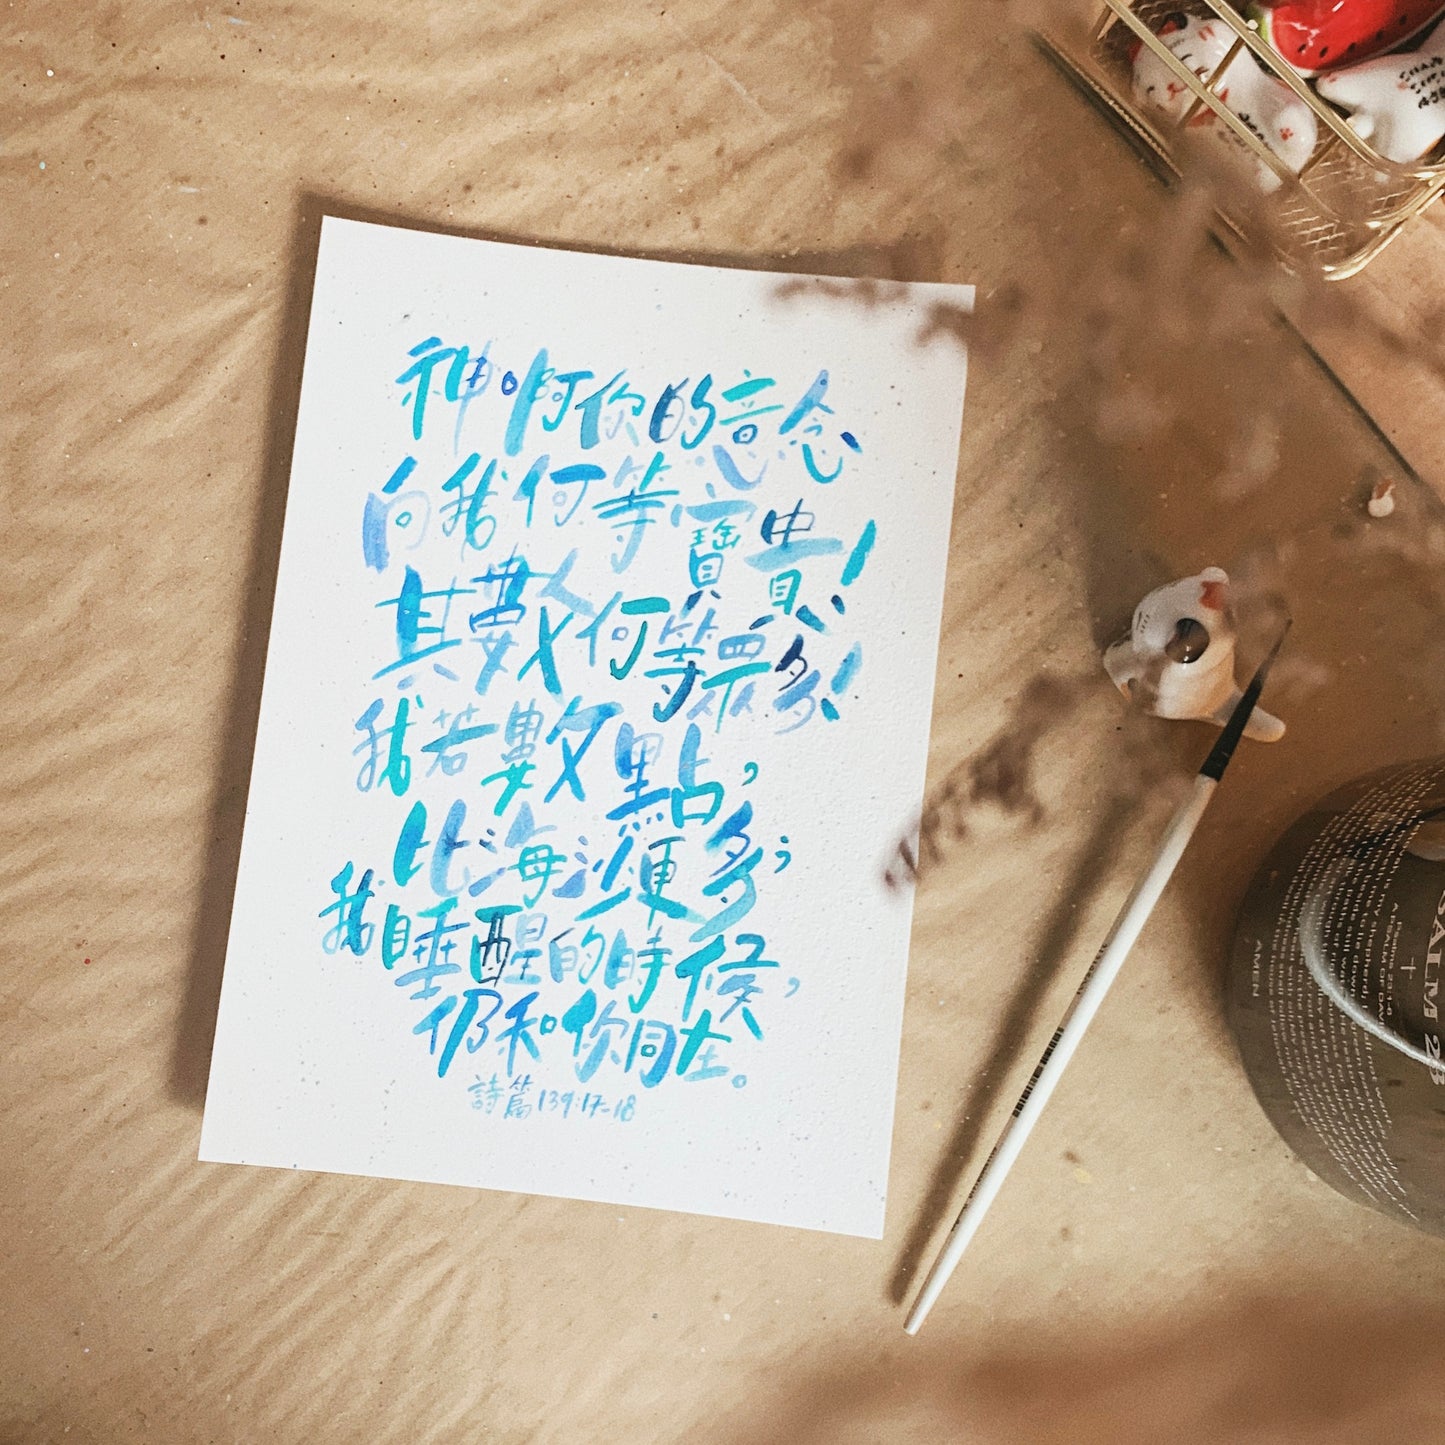 神。啊你的意念
向我何等寶貴!
其數何等眾多!
我若數點,
比海沙更多;
我睡醒的時候,
仍和你同在。
詩篇139:17-18
PSALM 23
A PSALM OF DAVID
AMEN